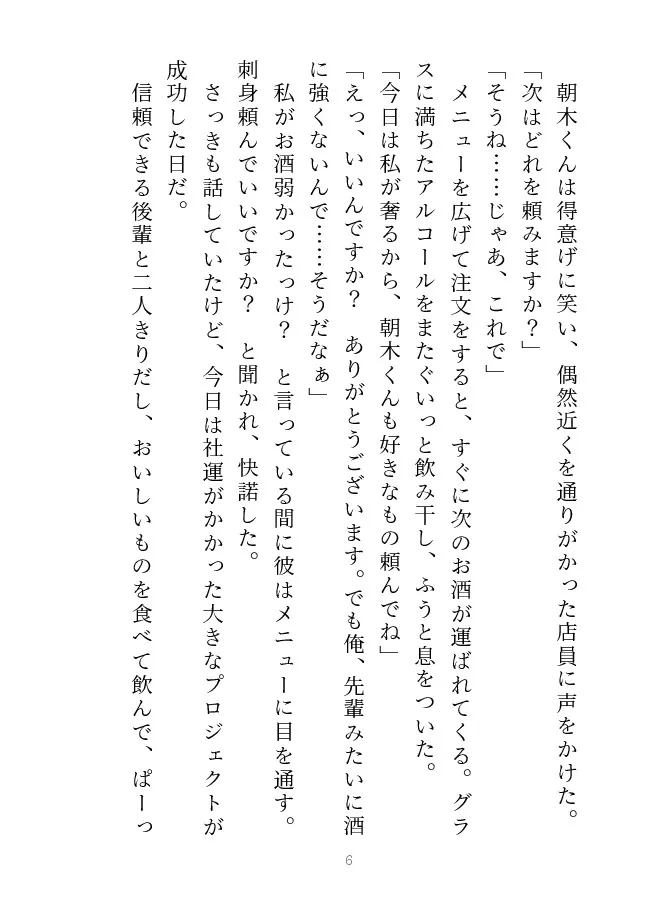 朝木くんは得意げに笑い、偶然近くを通りがかった店員に声をかけた。
「次はどれを頼みますか？」
「そうね……じゃあ、これで」
　メニューを広げて注文をすると、すぐに次のお酒が運ばれてくる。グラ
スに満ちたアルコールをまたぐいっと飲み干し、ふうと息をついた。
「今日は私が奢るから、朝木くんも好きなもの頼んでね」
「えっ、いいんですか？　ありがとうございます。でも俺、先輩みたいに酒
に強くないんで……そうだなぁ」
　私がお酒弱かったっけ？　と言っている間に彼はメニューに目を通す。
刺身頼んでいいですか？　と聞かれ、快諾した。
　さっきも話していたけど、今日は社運がかかった大きなプロジェクトが
成功した日だ。
　信頼できる後輩と二人きりだし、おいしいものを食べて飲んで、ぱーっ
6